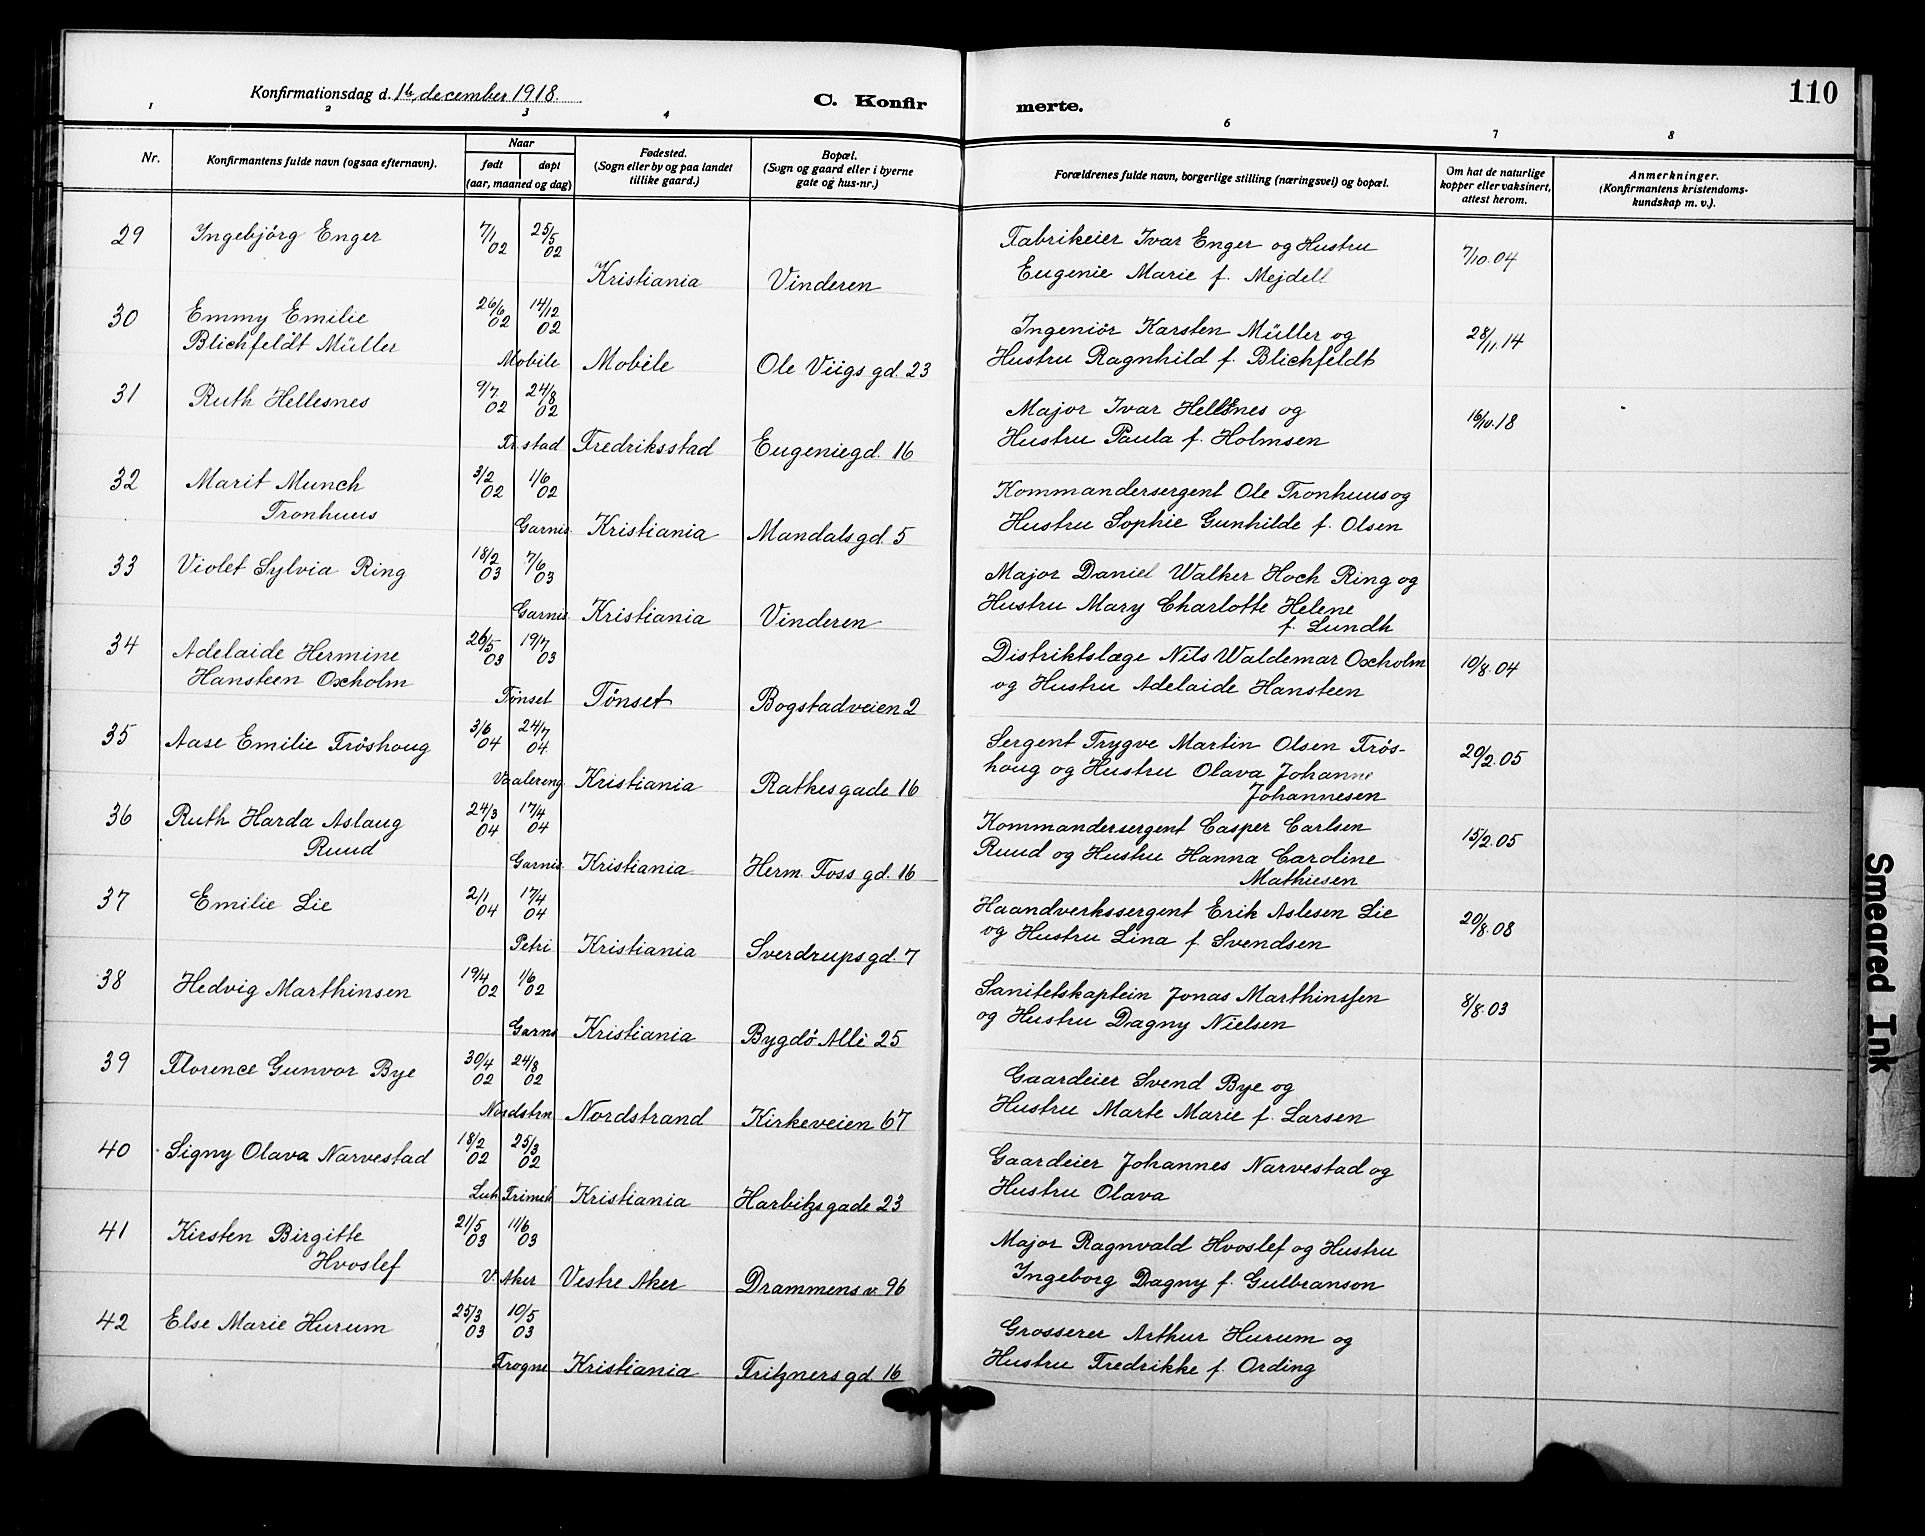 110
Konfirmationsdag d. 16. december 1918.
C. Konfir merte.
1 2 3 4 6 7 8
Nr.
Konfirmantens fulde navn (ogsaa efternavn).
Naar
født døpt
(aar, maaned og dag)
Fødested.
(Sogn eller by og paa landet
tillike gaard.)
Bopæl.
(Sogn og gaard eller i byerne
gate og hus-nr.)
Forældrenes fulde navn, borgerlige stilling (næringsvei) og bopæl.
Om hat de naturlige
kopper eller vaksinert,
attest herom.
Anmerkninger.
(Konfirmantens kristendoms-
kundskap m. v.).
29 Ingebjörg Enger 7/1 02 25/5 02 Fabrikeier Ivar Enger og Hustru 7/10.04
Kristiania Vinderen Eugenie Marie f. Mejdell
30 Emmy Emilie 26/6 02 14/12 02 Ingeniör Karsten Müller og 28/11.14
Blichfeldt Müller Mobile Mobile Ole Viigs gd. 23 Hustru Ragnhild f. Blichfeldt
31 Ruth Hellesnes 9/7 02 24/8 02 Major Ivar Hellesnes og 16/10.18
Fr.stad Fredriksstad Eugeniegd. 16 Hustru Paula f. Holmsen
32 Marit Munch 3/2 02 1/6 02 Kommandersergent Ole Tronhuus og
Tronhuus Garnis Kristiania Mandals gd. 5 Hustru Sophie Gunhilde f. Olsen
33 Violet Sylvia Ring 18/2 03 7/6 03 Major Daniel Walker Hoch Ring og
Garnis Kristiania Vinderen Hustru Mary Charlotte Helene
f. Lundh
34 Adelaide Hermine 26/5 03 19/7 03 Distriktslæge Nils Waldemar Oxholm 10/8.04
Hansteen Oxholm Tønset Tønset Bogstadveien 2 og Hustru Adelaide Hansteen
35 Aase Emilie Tröshoug 3/6 04 24/7 04 Sergent Trygve Martin Olsen Trös- 20/2.05
Vaalereng Kristiania Ratkes gade 16 houg og Hustru Olava Johanne
Johannesen
36 Ruth Harda Aslaug 24/3 04 17/4 04 Kommandersergent Casper Carlsen 15/2.05
Ruud Garnis Kristiania Herm. Foss gd. 16 Ruud og Hustru Hanna Caroline
Mathiesen
37 Emilie Lie 2/1 04 17/4 04 Haandverkssergent Erik Aslesen Lie 20/8.08
Petri Kristiania Sverdrups gd. 7 og Hustru Lina f. Svendsen
38 Hedvig Marthinsen 19/4 02 1/6 02 Sanitetskaptein Jonas Marthinssen 8/8.03
Garns Kristiania Bygdö Alle 25 og Hustru Dagny Nielsen
39 Florence Gunvor Bye 30/4 02 24/8 02 Gaardeier Svend Bye og
Nordstrn Nordstrand Kirkeveien 67 Hustru Marte Marie f. Larsen
40 Signy Olava Narvestad 18/2 02 25/3 02 Gaardeier Johannes Narvestad og
Luth Frimeh Kristiania Harbitzs gade 23 Hustru Olava
41 Kirsten Birgitte 21/5 03 11/6 03 Major Ragnvald Hvoslef og Hustru
Hvoslef V. Aker Vestre Aker Drammens v. 96 Ingeborg Dagny f. Gulbranson
42 Else Marie Hurum 25/3 03 10/5 03 Grosserer Arthur Hurum og
Frogne Kristiania Fritzners gd. 16 Hustru Fredrikke f. Ording
Smeared Ink